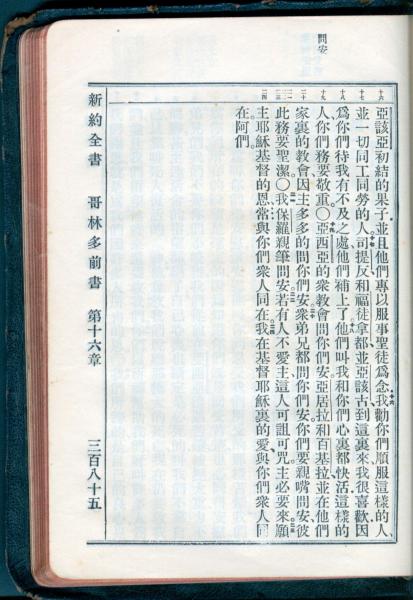 問安
十六
十七
十八
十九
二十
二一
二二
二三
二四
亞該亞初結的果子並且他們專以服事聖徒爲念我勸你們順服這樣的人
並一切同工同勞的人司提反和福徒拿都並亞該古到這裏來我很喜歡因
爲你們待我有不及之處他們補上了他們叫我和你們心裏都快活這樣的
人你們務要敬重〇亞西亞的衆教會問你們安亞居拉和百基拉並在他們
家裏的教會因主多多的問你們安衆弟兄都問你們安你們要親嘴問安彼
此務要聖潔〇我保羅親筆問安若有人不愛主這人可詛可咒主必要來願
主耶穌基督的恩常與你們衆人同在我在基督耶穌裏的愛與你們衆人同
在阿們
新約全書 哥林多前書 第十六章 三百八十五